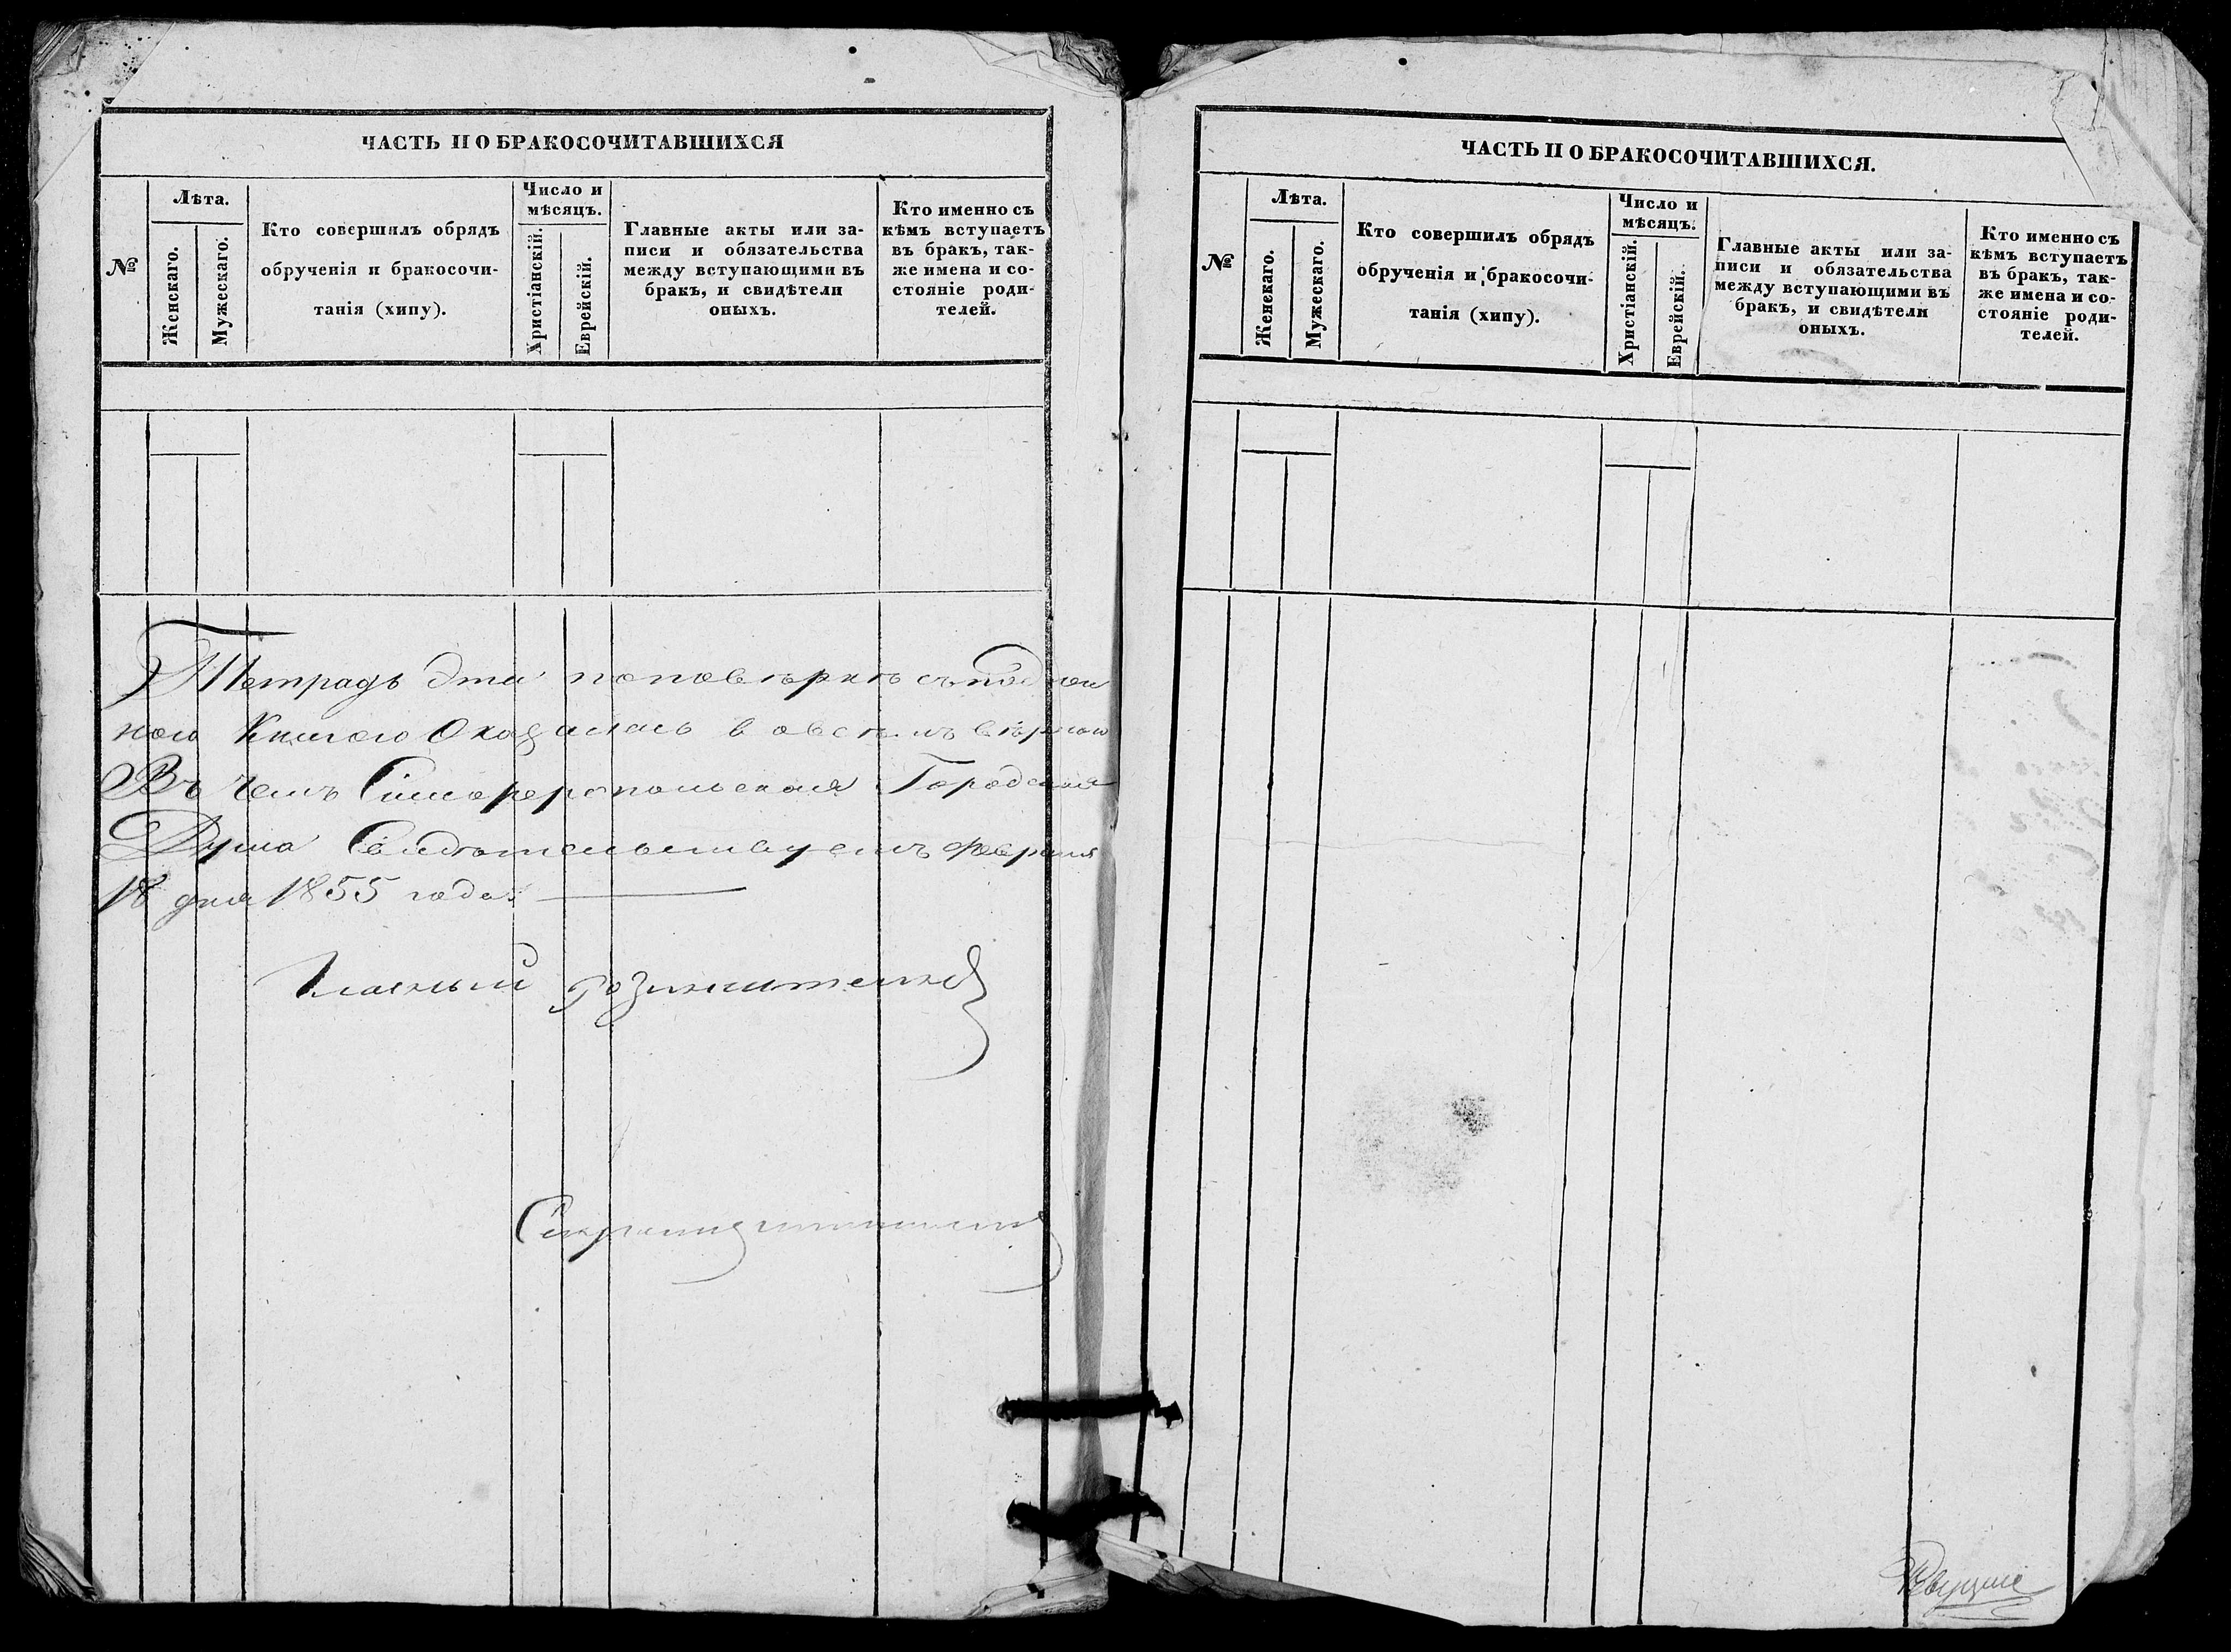 ЧАСТЬ II О БРАКОСОЧИТАВШИХСЯ
№
Лѣта.
Женскаго.
Мужескаго.
Кто совершилъ обрядъ
обрученія и бракосочи-
танія (хипу).
Число и
мѣсяцъ.
Христіанскій.
Еврейскій.
Главные акты или за-
писи и обязательства
между вступающими въ
бракъ, и свидѣтели
оныхъ.
Кто именно съ
кѣмъ вступаетъ
въ бракъ, так-
же имена и со-
стояніе роди-
телей.
Тетрадь эта по повѣркѣ съ подлин
ною Книгою Оказалась во всемъ вѣрною
Въ чемъ Симферопольская Городская
Дума Свидѣтельствуетъ Февраля
18 дня 1855 года
Гласный
ЧАСТЬ II О БРАКОСОЧИТАВШИХСЯ.
№
Лѣта.
Женскаго.
Мужескаго.
Кто совершилъ обрядъ
обрученія и бракосочи-
танія (хипу).
Число и
мѣсяцъ.
Христіанскій.
Еврейскій.
Главные акты или за-
писи и обязательства
между вступающими въ
бракъ, и свидѣтели
оныхъ.
Кто именно съ
кѣмъ вступаетъ
въ бракъ, так-
же имена и со-
стояніе роди-
телей.